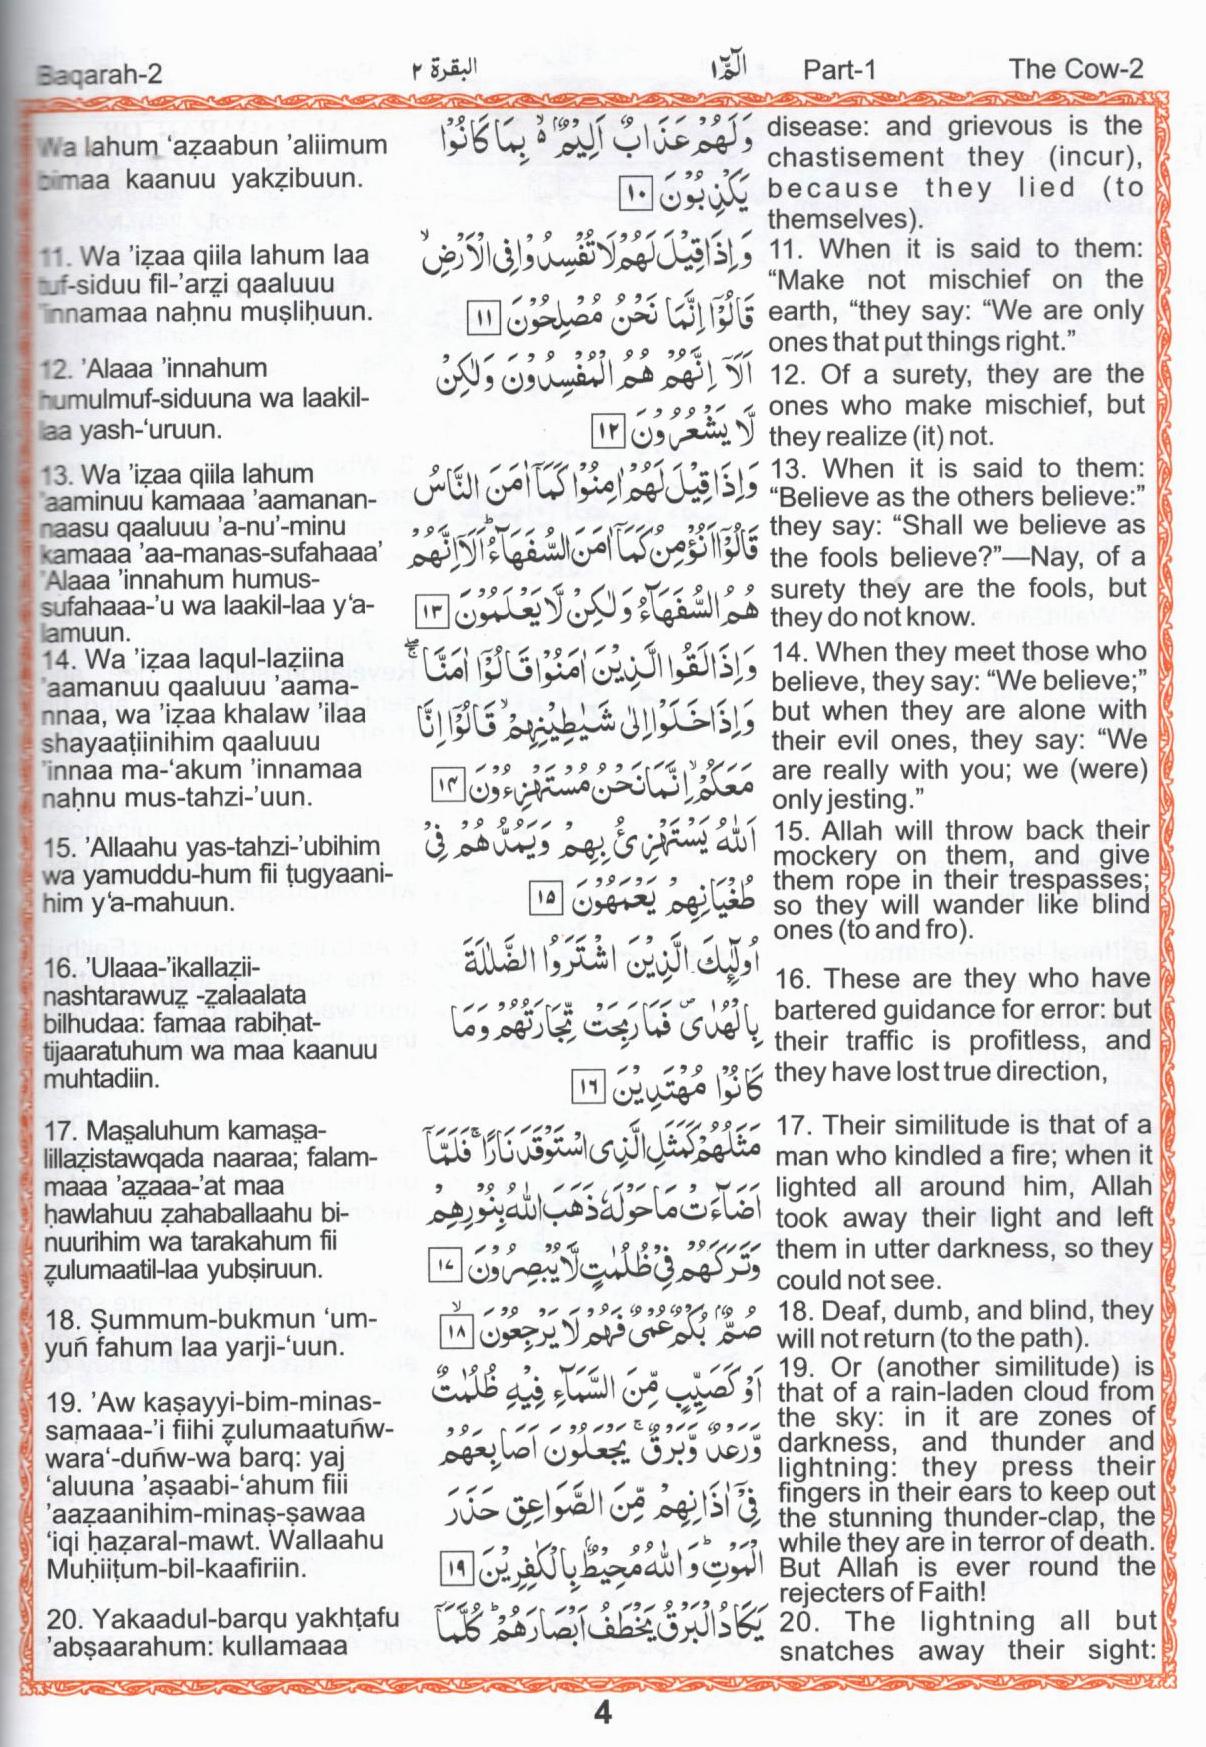 Baqarah-2
البقرة ٢
الٓمّٓ ١
Part-1
The Cow-2
Wa lahum ‘aẓaabun ’aliimum
bimaa kaanuu yakẓibuun.
11. Wa ’iẓaa qiila lahum laa
tuf-siduu fil-’arẓi qaaluuu
’innamaa naḥnu muṣliḥuun.
12. ’Alaaa ’innahum
humulmuf-siduuna wa laakil-
laa yash-‘uruun.
13. Wa ’iẓaa qiila lahum
’aaminuu kamaaa ’aamanan-
naasu qaaluuu ’a-nu’-minu
kamaaa ’aa-manas-sufahaaa’
’Alaaa ’innahum humus-
sufahaaa-’u wa laakil-laa y‘a-
lamuun.
14. Wa ’iẓaa laqul-laẓiina
’aamanuu qaaluuu ’aama-
nnaa, wa ’iẓaa khalaw ’ilaa
shayaaṭiinihim qaaluuu
’innaa ma-‘akum ’innamaa
naḥnu mus-tahzi-’uun.
15. ’Allaahu yas-tahzi-’ubihim
wa yamuddu-hum fii ṭugyaani-
him y‘a-mahuun.
16. ’Ulaaa-’ikallaẓii-
nashtarawuẓ -ẓalaalata
bilhudaa: famaa rabiḥat-
tijaaratuhum wa maa kaanuu
muhtadiin.
17. Maṣaluhum kamaṣa-
lillaẓistawqada naaraa; falam-
maaa ’aẓaaa-’at maa
ḥawlahuu ẓahaballaahu bi-
nuurihim wa tarakahum fii
ẓulumaatil-laa yubṣiruun.
18. Ṣummum-bukmun ‘um-
yuñ fahum laa yarji-‘uun.
19. ’Aw kaṣayyi-bim-minas-
samaaa-’i fiihi ẓulumaatuñw-
wara‘-duñw-wa barq: yaj
‘aluuna ’aṣaabi-‘ahum fiii
’aaẓaanihim-minaṣ-ṣawaa
‘iqi ḥaẓaral-mawt. Wallaahu
Muḥiiṭum-bil-kaafiriin.
20. Yakaadul-barqu yakhṭafu
’abṣaarahum: kullamaaa
وَلَهُمْ عَذَابٌ اَلِيْمٌۢ ۙ بِمَا كَانُوْا
يَكْذِبُوْنَ ١٠
وَاِذَا قِيْلَ لَهُمْ لَا تُفْسِدُوْا فِى الْاَرْضِ ۙ
قَالُوْٓا اِنَّمَا نَحْنُ مُصْلِحُوْنَ ١١
اَلَآ اِنَّهُمْ هُمُ الْمُفْسِدُوْنَ وَلٰكِنْ
لَّا يَشْعُرُوْنَ ١٢
وَاِذَا قِيْلَ لَهُمْ اٰمِنُوْا كَمَآ اٰمَنَ النَّاسُ
قَالُوْٓا اَنُؤْمِنُ كَمَآ اٰمَنَ السُّفَهَآءُ ؕ اَلَآ اِنَّهُمْ
هُمُ السُّفَهَآءُ وَلٰكِنْ لَّا يَعْلَمُوْنَ ١٣
وَاِذَا لَقُوا الَّذِيْنَ اٰمَنُوْا قَالُوْٓا اٰمَنَّا ۖۚ
وَاِذَا خَلَوْا اِلٰى شَيٰطِيْنِهِمْ ۙ قَالُوْٓا اِنَّا
مَعَكُمْ ۙ اِنَّمَا نَحْنُ مُسْتَهْزِءُوْنَ ١٤
اَللّٰهُ يَسْتَهْزِئُ بِهِمْ وَيَمُدُّهُمْ فِىْ
طُغْيَانِهِمْ يَعْمَهُوْنَ ١٥
اُولٰٓئِكَ الَّذِيْنَ اشْتَرَوُا الضَّلٰلَةَ
بِالْهُدٰى ۖ فَمَا رَبِحَتْ تِّجَارَتُهُمْ وَمَا
كَانُوْا مُهْتَدِيْنَ ١٦
مَثَلُهُمْ كَمَثَلِ الَّذِى اسْتَوْقَدَ نَارًا ۚ فَلَمَّآ
اَضَآءَتْ مَا حَوْلَهٗ ذَهَبَ اللّٰهُ بِنُوْرِهِمْ
وَتَرَكَهُمْ فِىْ ظُلُمٰتٍ لَّا يُبْصِرُوْنَ ١٧
صُمٌّۢ بُكْمٌ عُمْىٌ فَهُمْ لَا يَرْجِعُوْنَ ۙ ١٨
اَوْ كَصَيِّبٍ مِّنَ السَّمَآءِ فِيْهِ ظُلُمٰتٌ
وَّرَعْدٌ وَّبَرْقٌ ۚ يَجْعَلُوْنَ اَصَابِعَهُمْ
فِىْٓ اٰذَانِهِمْ مِّنَ الصَّوَاعِقِ حَذَرَ
الْمَوْتِ ؕ وَاللّٰهُ مُحِيْطٌۢ بِالْكٰفِرِيْنَ ١٩
يَكَادُ الْبَرْقُ يَخْطَفُ اَبْصَارَهُمْ ؕ كُلَّمَآ
disease: and grievous is the
chastisement they (incur),
because they lied (to
themselves).
11. When it is said to them:
“Make not mischief on the
earth, “they say: “We are only
ones that put things right.”
12. Of a surety, they are the
ones who make mischief, but
they realize (it) not.
13. When it is said to them:
“Believe as the others believe:”
they say: “Shall we believe as
the fools believe?”—Nay, of a
surety they are the fools, but
they do not know.
14. When they meet those who
believe, they say: “We believe;”
but when they are alone with
their evil ones, they say: “We
are really with you; we (were)
only jesting.”
15. Allah will throw back their
mockery on them, and give
them rope in their trespasses;
so they will wander like blind
ones (to and fro).
16. These are they who have
bartered guidance for error: but
their traffic is profitless, and
they have lost true direction,
17. Their similitude is that of a
man who kindled a fire; when it
lighted all around him, Allah
took away their light and left
them in utter darkness, so they
could not see.
18. Deaf, dumb, and blind, they
will not return (to the path).
19. Or (another similitude) is
that of a rain-laden cloud from
the sky: in it are zones of
darkness, and thunder and
lightning: they press their
fingers in their ears to keep out
the stunning thunder-clap, the
while they are in terror of death.
But Allah is ever round the
rejecters of Faith!
20. The lightning all but
snatches away their sight:
4